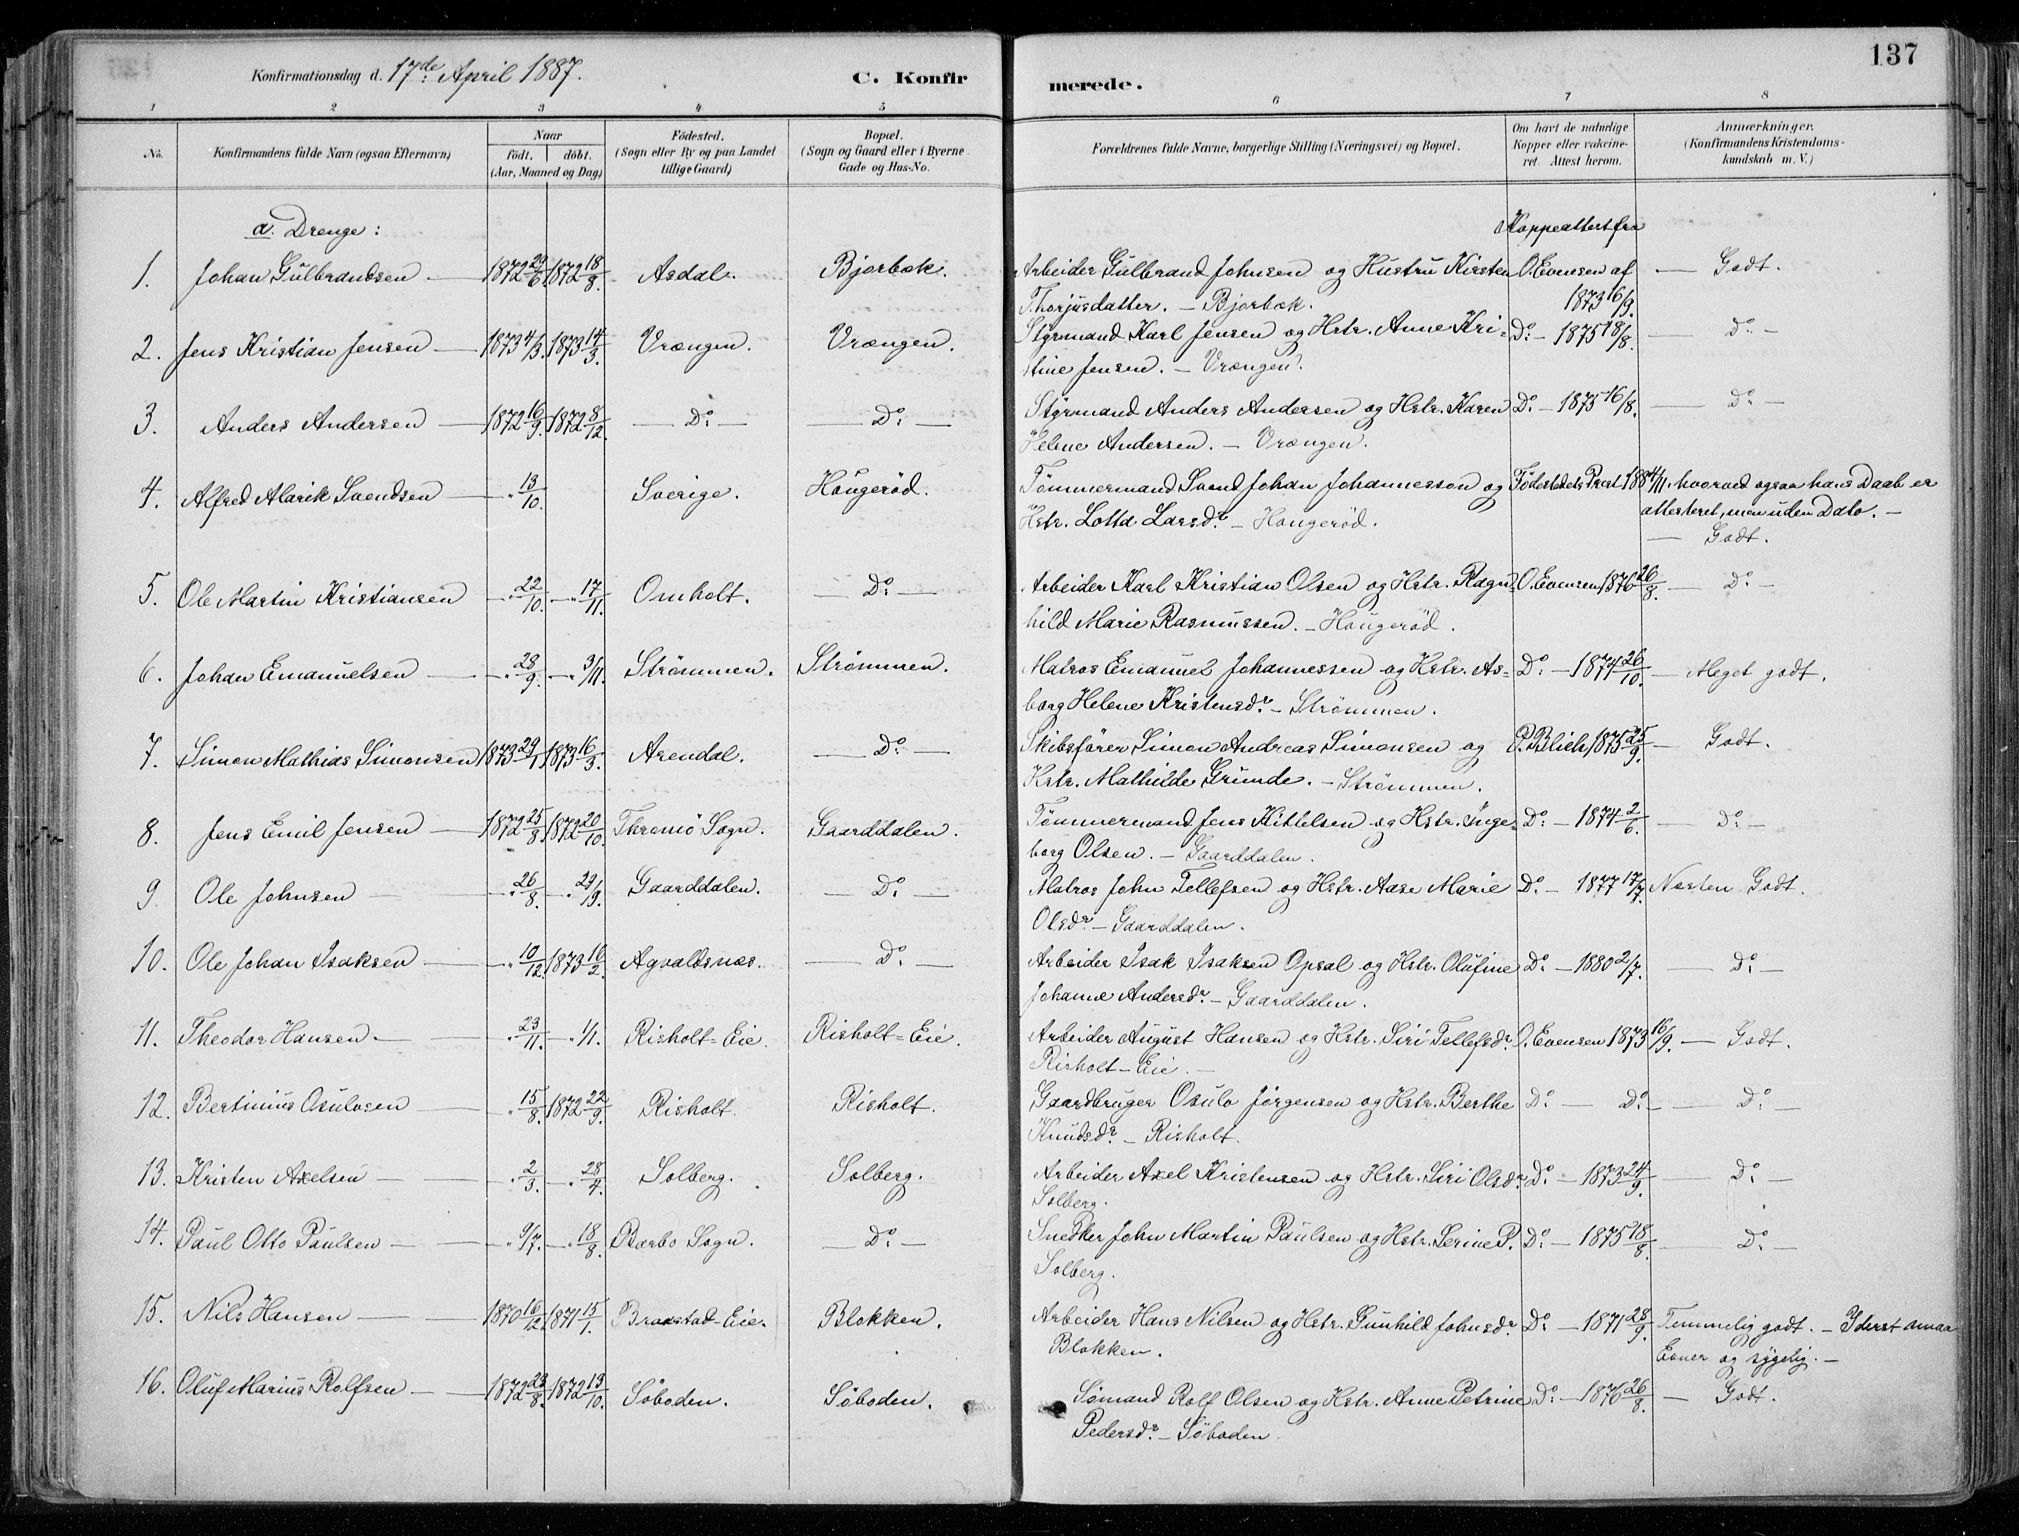 137
Konfirmationsdag d. 17de April 1887. C. Konfirmerede.
1 2 3 4 5 6 7 8
No. Konfirmandens fulde Navn (ogsaa Efternavn) Naar födt. döbt. (Aar, Maaned og Dag) Födested. (Sogn eller By og paa Landet tillige Gaard) Bopæl. (Sogn og Gaard eller i Byerne Gade og Hus-No. Forældrenes fulde Navne, borgerlige Stilling (Næringsvei) og Bopæl. Om havt de naturlige Kopper eller vakcineret. Attest herom. Anmærkninger. (Konfirmandens Kristendomskundskab m. V.)
a. Drenge: Koppeattest fra
1. Johan Gulbrandsen 1872 29/6 1872 18/8. Asdal. Bjorbæk. Arbeider Gulbrand Johnsen og Hustru Kirsten O. Evensen af — Godt.
Thorjusdatter. — Bjorbæk. 1873 16/9.
2. Jens Kristian Jensen 1873 4/3. 1873 14/3. Vrængen. Vrængen. Styrmand Karl Jensen og Hstr. Anne Kri- Do — 1875 18/8. — Do —
stine Jensen. — Vrængen.
3. Anders Andersen 1872 16/9. 1872 8/12. — Do — — Do — Styrmand Anders Andersen og Hstr. Karen Do — 1875 16/8. — Do —
Helene Andersen. — Vrængen.
4. Alfred Alarik Svendsen — " 13/10. Sverige. Hougeröd. Tømmermand Svend Johan Johannesson og Fødestedets Præst 188 4/11. hvorved ogsaa hans Daab er
Hstr. Lotta Larsdr — Hougeröd. attesteret, men uden Dato. —
— Godt.
5. Ole Martin Kristiansen — " 22/10. — " 17/11. Omholt. — Do — Arbeider Karl Kristian Olsen og Hstr. Ragn- O. Evensen 1876 26/8. — Do —
hild Marie Rasmussen. — Hougeröd.
6. Johan Emanuelsen — " 28/9. — " 3/11. Strömmen. Strømmen. Matros Emanuel Johannessen og Hstr. As- Do — 1874 26/10. — Meget godt.
borg Helene Kristensdr — Strömmen.
7. Simon Mathias Simonsen 1873 29/1. 1873 16/3. Arendal. — Do — Skibsfører Simon Andreas Simonsen og P. Blich 1875 25/9. — Godt.
Hstr. Mathilde Grunde. — Strömmen.
8. Jens Emil Jensen 1872 25/8. 1872 20/10. Thromö Sogn. Gaarddalen. Tømmermand Jens Kittelsen og Hstr. Inge- Do — 1874 2/6. — Do —
borg Olsen. — Gaarddalen.
9. Ole Johnsen — " 26/8. — " 29/9. Gaarddalen. — Do — Matros John Tellefsen og Hstr. Aase Marie Do — 1877 17/7. Næsten Godt.
Olsdr — Gaarddalen.
10. Ole Johan Isaksen — " 10/12. 1873 16/2. Agvaldsnæs. — Do — Arbeider Isak Isaksen Opsal og Hstr. Olufine Do — 1880 2/7. — Do —
Johanne Andersdr — Gaarddalen.
11. Theodor Hansen. — " 23/11. — " 1/1. Risholt-Eie. Risholt-Eie. Arbeider August Hansen og Hstr. Siri Tellefsdr O. Evensen 1873 16/9. — Godt.
Risholt-Eie. —
12. Bertinius Osulvsen — " 15/8. 1872 22/9. Risholt. Risholt. Gaardbruger Osulv Jørgensen og Hstr. Berthe Do — Do — — Do —
Knudsdr — Risholt.
13. Kristen Axelsen — " 2/3. — " 28/4. Solberg. Solberg. Arbeider Axel Kristensen og Hstr. Siri Olsdr Do — 1873 24/9. — Do —
Solberg.
14. Paul Otto Paulsen — " 9/7. — " 18/8. Barbo Sogn. — Do — Snedker John Martin Paulsen og Hstr. Serine P. Do — 1875 18/8. — Do —
Solberg.
15. Nils Hansen 1870 16/12. 1871 15/1. Braastad-Eie. Blokken. Arbeider Hans Nilsen og Hstr. Gunhild Johnsdr Do — 1871 28/9. Temmelig godt. — Yderst smaa
Blokken. Evner og sygelig. —
16. Oluf Marius Rolfsen 1872 23/8. 1872 13/10. Söboden. Söboden. Sømand Rolf Olsen og Hstr. Anne Petrine Do — 1876 26/8. — Godt.
Pedersdr — Söboden.